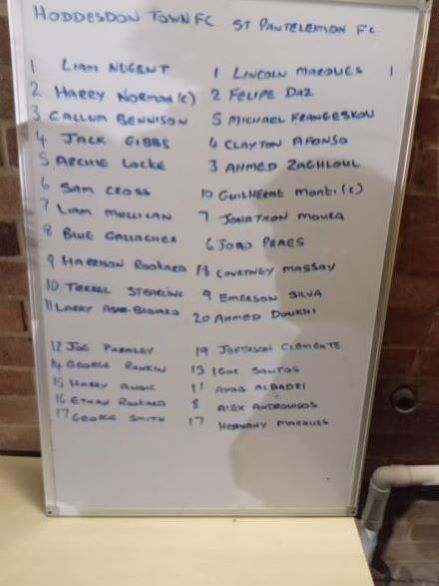 HODDESDON TOWN FC ST PANTELEIMON FC
1 LIAM NUGENT 1 LINCOLN MARQUES 1
2 HARRY NORMAN (C) 2 FELIPE DAZ
3 CALLUM BENNISON 5 MICHAEL FRANGESKOU
4 JACK GIBBS 4 CLAYTON AFONSO
5 ARCHIE LOCKE 3 AHMED ZAGHLOUL
6 SAM CROSS 10 GUILHERME MONTI (C)
7 LIAM MULLIGAN 7 JONATHON MOURA
8 BLUE GALLAGHER 6 JOAO PRAES
9 HARRISON ROOKARD 18 COURTNEY MASSAY
10 TERREL STERLING 9 EMERSON SILVA
11 LARRY 20 AHMED DOUKHI
12 JOE PARMLEY 19 JEFFERSON CLEMENTE
14 GEORGE RANKIN 13 IGOR SANTOS
15 HARRY 11 AYAB ALBADRI
16 ETHAN ROOKARD 8 ALEX
17 GEORGE SMITH 17 MARQUES